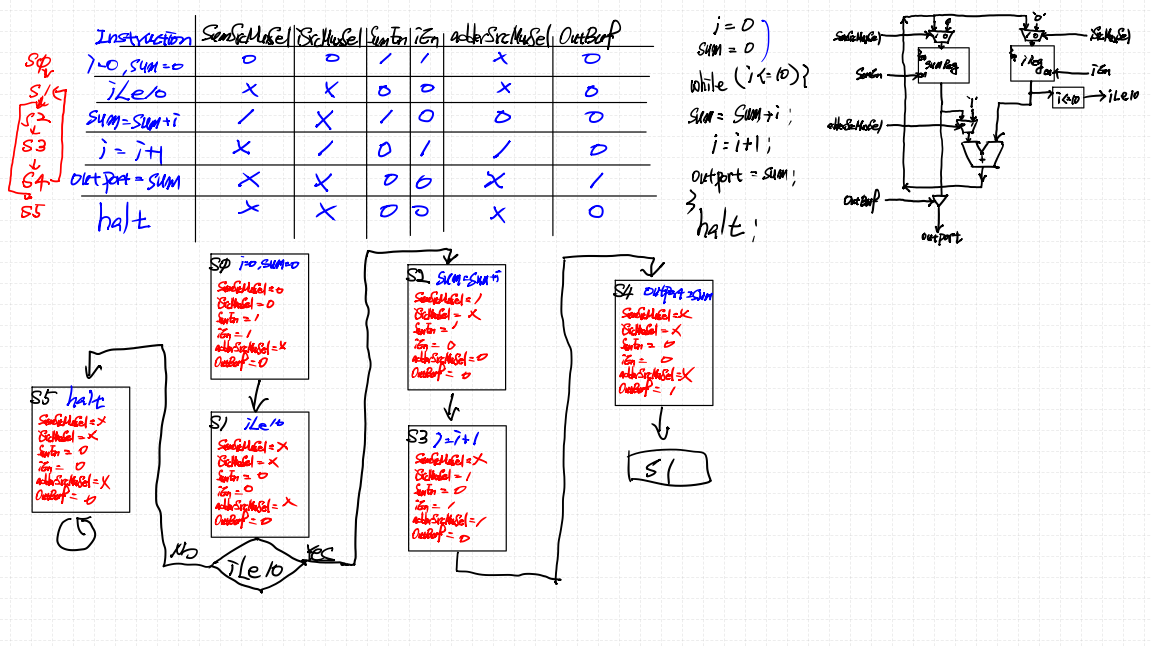 Instruction SumSrcMuxSel iSrcMuxSel SumEn iEn adderSrcMuxSel OutBuf
S0 i=0, sum=0 0 0 1 1 x 0
S1 iLe10 x x 0 0 x 0
S2 sum=sum+i 1 x 1 0 0 0
S3 i=i+1 x 1 0 1 1 0
S4 outport=sum x x 0 0 x 1
S5 halt x x 0 0 x 0
i=0
sum=0
while (i<=10){
sum=sum+i;
i=i+1;
outport=sum;
}
halt;
'0'
SumSrcMuxSel
iSrcMuxSel
sumReg
iReg
SumEn
iEn
i<=10
iLe10
'1'
adderSrcMuxSel
+
OutBuf
outport
S0 i=0, sum=0
SumSrcMuxSel=0
iSrcMuxSel=0
SumEn=1
iEn=1
adderSrcMuxSel=x
OutBuf=0
S1 iLe10
SumSrcMuxSel=x
iSrcMuxSel=x
SumEn=0
iEn=0
adderSrcMuxSel=x
OutBuf=0
iLe10
No
Yes
S2 sum=sum+i
SumSrcMuxSel=1
iSrcMuxSel=x
SumEn=1
iEn=0
adderSrcMuxSel=0
OutBuf=0
S3 i=i+1
SumSrcMuxSel=x
iSrcMuxSel=1
SumEn=0
iEn=1
adderSrcMuxSel=1
OutBuf=0
S4 outport=sum
SumSrcMuxSel=x
iSrcMuxSel=x
SumEn=0
iEn=0
adderSrcMuxSel=x
OutBuf=1
S1
S5 halt
SumSrcMuxSel=x
iSrcMuxSel=x
SumEn=0
iEn=0
adderSrcMuxSel=x
OutBuf=0